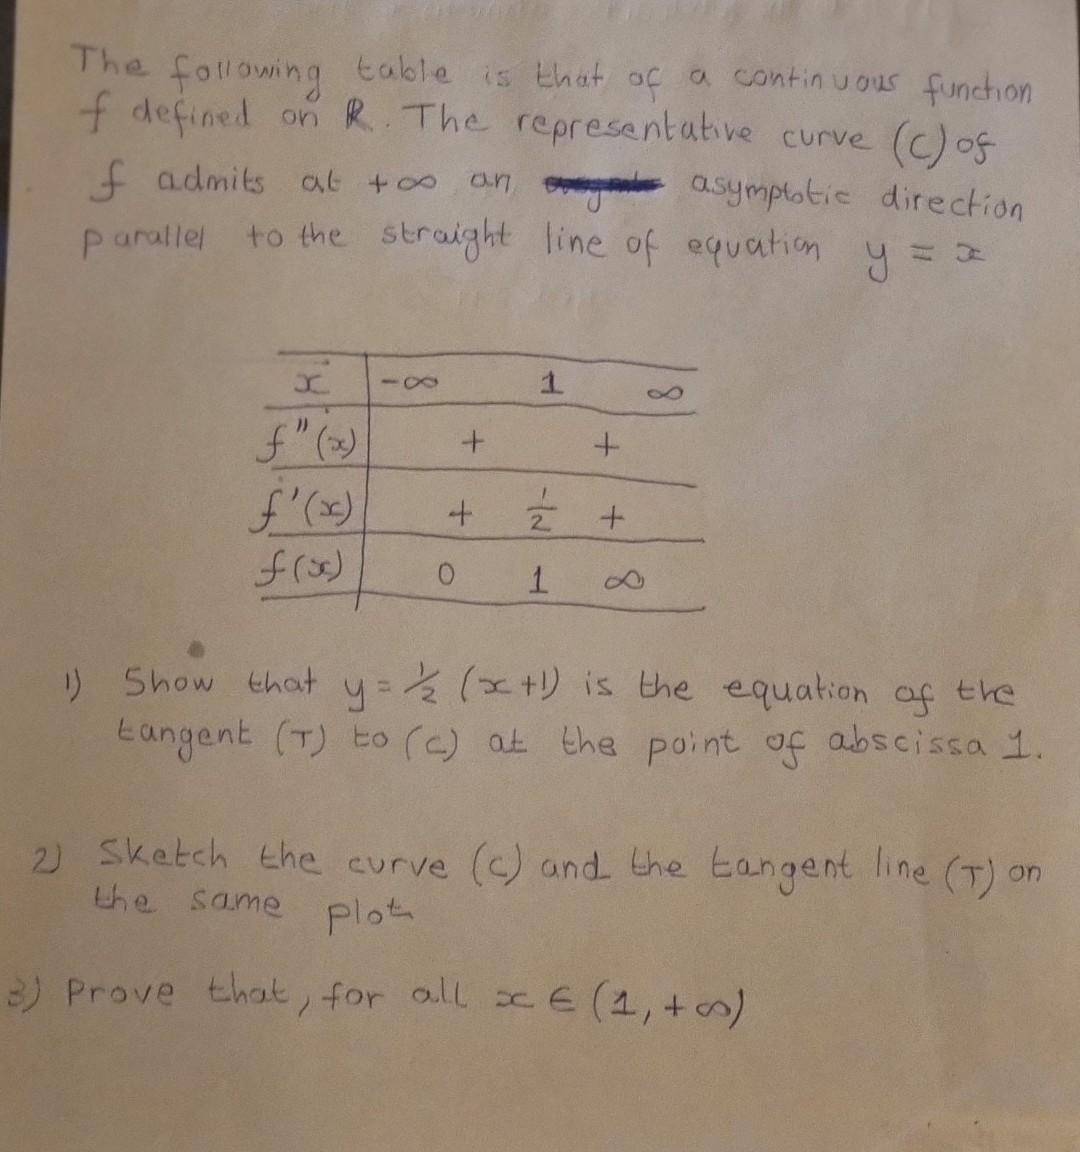 The following table is that of a continuous function
f defined on ℝ. The representative curve (C) of
f admits at +∞ an asymptotic direction
parallel to the straight line of equation y = x
x -∞ 1 ∞
f"(x) + +
f'(x) + 1/2 +
f(x) 0 1 ∞
1) Show that y = 1/2 (x+1) is the equation of the
tangent (T) to (C) at the point of abscissa 1.
2) Sketch the curve (C) and the tangent line (T) on
the same plot
3) Prove that, for all x ∈ (1, +∞)